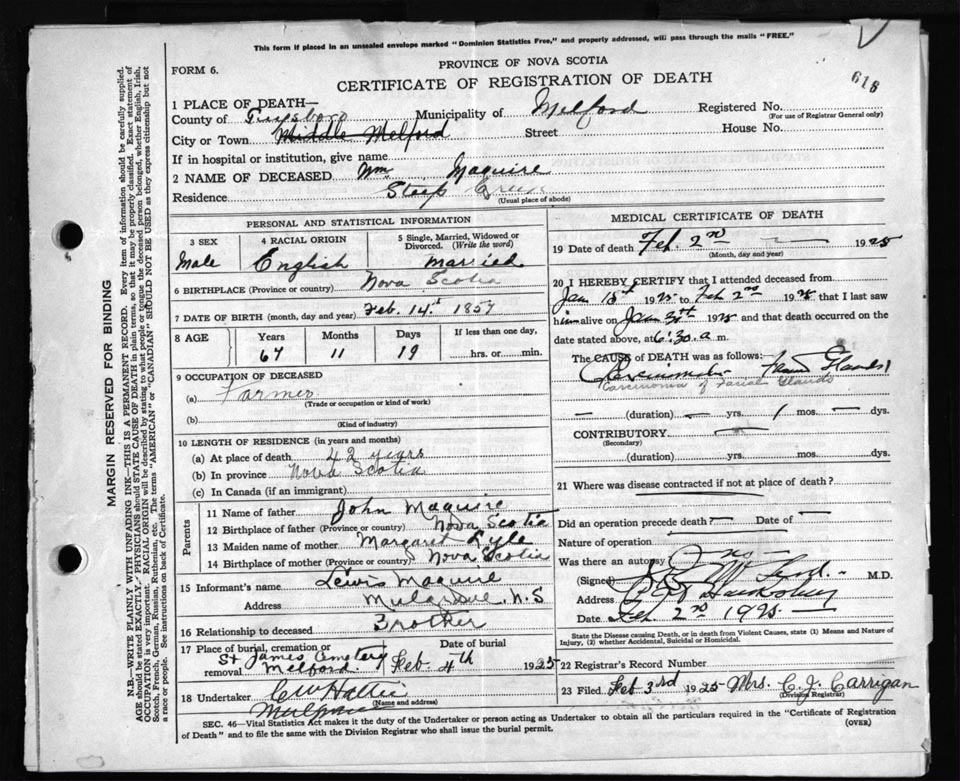 This form if placed in an unsealed envelope marked "Dominion Statistics Free," and properly addressed, will pass through the mails "FREE."
PROVINCE OF NOVA SCOTIA
FORM 6.
CERTIFICATE OF REGISTRATION OF DEATH
616
1 PLACE OF DEATH—
County of Guysboro Municipality of Melford Registered No.
(For use of Registrar General only)
City or Town Middle Melford Street House No.
If in hospital or institution, give name
2 NAME OF DECEASED Wm Maguire
Residence Steep Creek
(Usual place of abode)
PERSONAL AND STATISTICAL INFORMATION
3 SEX 4 RACIAL ORIGIN 5 Single, Married, Widowed or Divorced. (Write the word)
Male English married
6 BIRTHPLACE (Province or country) Nova Scotia
7 DATE OF BIRTH (month, day and year) Feb. 14. 1857
8 AGE Years Months Days If less than one day,
67 11 19 hrs. or min.
9 OCCUPATION OF DECEASED
(a) Farmer
(Trade or occupation or kind of work)
(b)
(Kind of industry)
10 LENGTH OF RESIDENCE (in years and months)
(a) At place of death 42 years
(b) In province Nova Scotia
(c) In Canada (if an immigrant)
Parents
11 Name of father John Maguire
12 Birthplace of father (Province or country) Nova Scotia
13 Maiden name of mother Margaret Lyle
14 Birthplace of mother (Province or country) Nova Scotia
15 Informant's name Lewis Maguire
Address Mulgrave. N.S
16 Relationship to deceased Brother
17 Place of burial, cremation or removal Date of burial
St James Cemetery Melford. Feb 4th 1925
18 Undertaker C W Hattie
(Name and address)
Mulgrave
MEDICAL CERTIFICATE OF DEATH
19 Date of death Feb. 2nd 1925
(Month, day and year)
20 I HEREBY CERTIFY that I attended deceased from
Jan 1925 to Feb 2nd 1925 that I last saw
him alive on Jan 1925 and that death occurred on the
date stated above, at 6:30 a m.
The CAUSE of DEATH was as follows:
Carcinoma Glands
Carcinoma of Facial Glands
— (duration) — yrs. 1 mos. — dys.
CONTRIBUTORY
(Secondary)
(duration) yrs. mos. dys.
21 Where was disease contracted if not at place of death?
Did an operation precede death? — Date of —
Nature of operation
Was there an autopsy no
(Signed) M.D.
Address
Date Feb 2nd 1925
State the Disease causing Death, or in death from Violent Causes, state (1) Means and Nature of Injury, (2) whether Accidental, Suicidal or Homicidal.
22 Registrar's Record Number
23 Filed Feb 3rd 1925 Mrs. C. J. Carrigan
(Division Registrar)
SEC. 46—Vital Statistics Act makes it the duty of the Undertaker or person acting as Undertaker to obtain all the particulars required in the "Certificate of Registration of Death" and to file the same with the Division Registrar who shall issue the burial permit.
(OVER)
MARGIN RESERVED FOR BINDING
N.B. WRITE PLAINLY WITH UNFADING INK—THIS IS A PERMANENT RECORD. Every item of information should be carefully supplied.
AGE should be stated EXACTLY. PHYSICIANS should STATE CAUSE OF DEATH in plain terms, so that it may be properly classified. Exact statement of
OCCUPATION is very important. RACIAL ORIGIN will be described by stating to what people or tongue the deceased person belonged, whether English, Irish,
Scotch, French, German, Russian, Ruthenian, etc. The terms "AMERICAN" or "CANADIAN" SHOULD NOT BE USED as they express citizenship but not
a race or people. See instructions on back of Certificate.